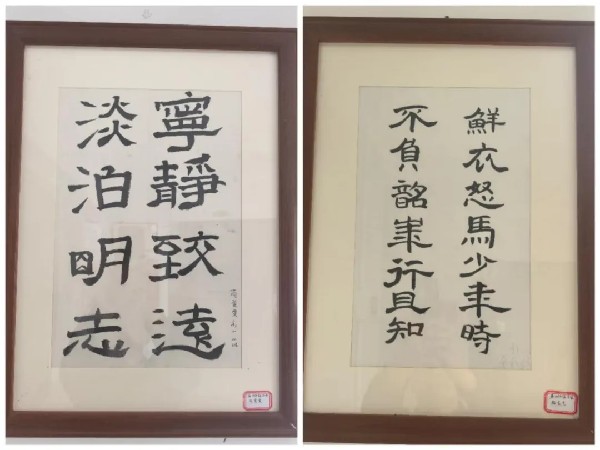 寧靜致遠
淡泊明志
鮮衣怒馬少年時
不負韶華行且知